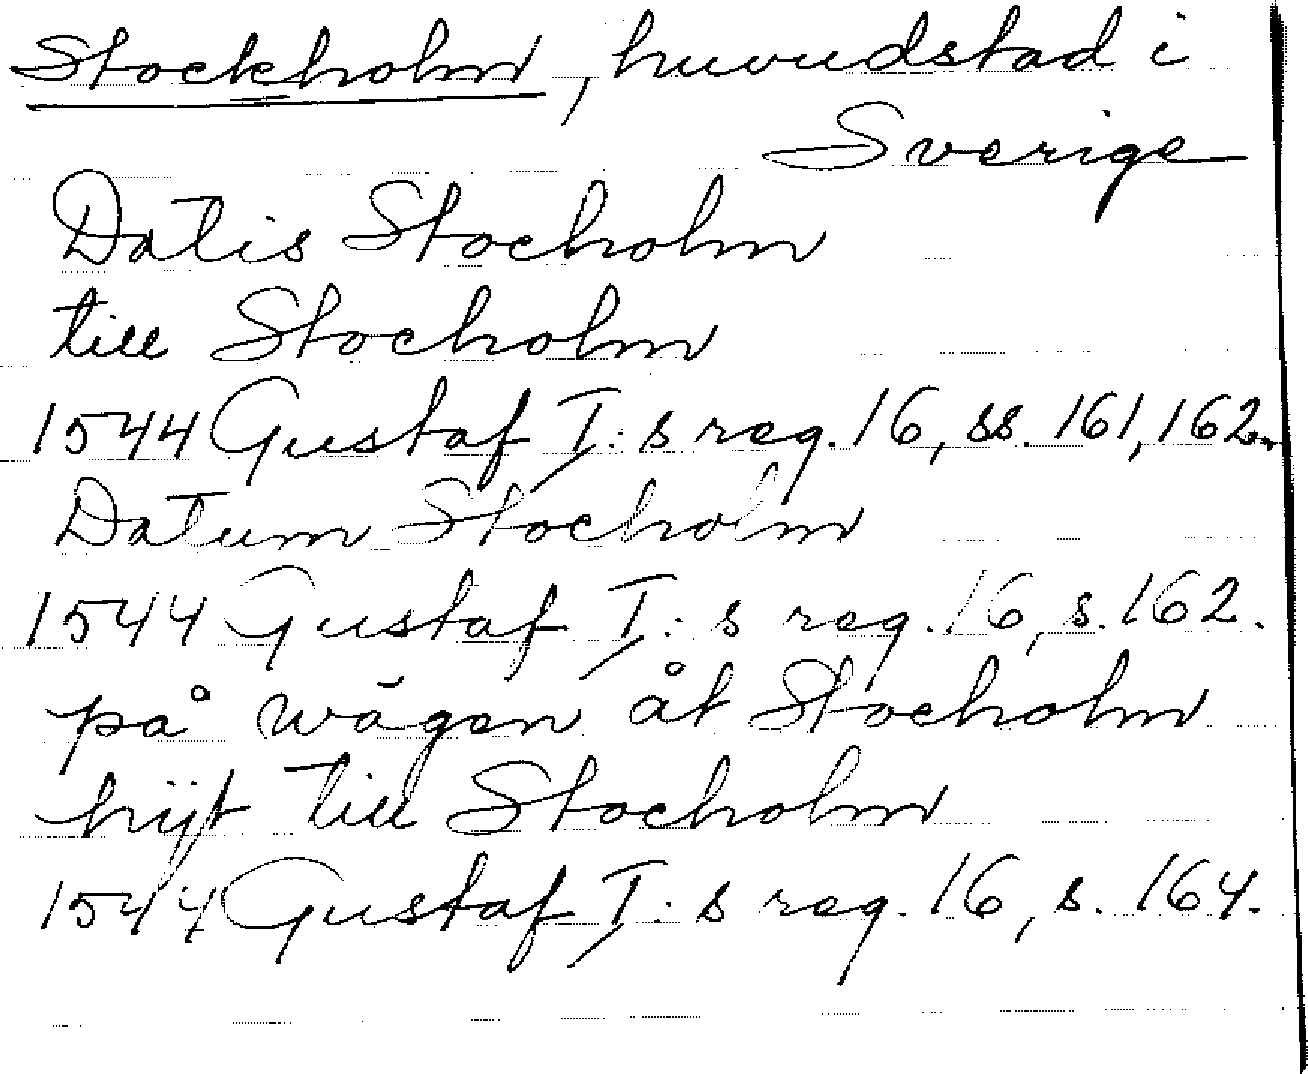 Stockholm, huvudstad i
Sverige
Datis Stocholm
till Stocholm
1544 Gustaf I:s reg. 16, ss. 161, 162.
Datum Stocholm
1544 Gustaf I:s reg. 16, s. 162.
på wägen åt Stocholm
hijt till Stocholm
1544 Gustaf I:s reg. 16, s. 164.